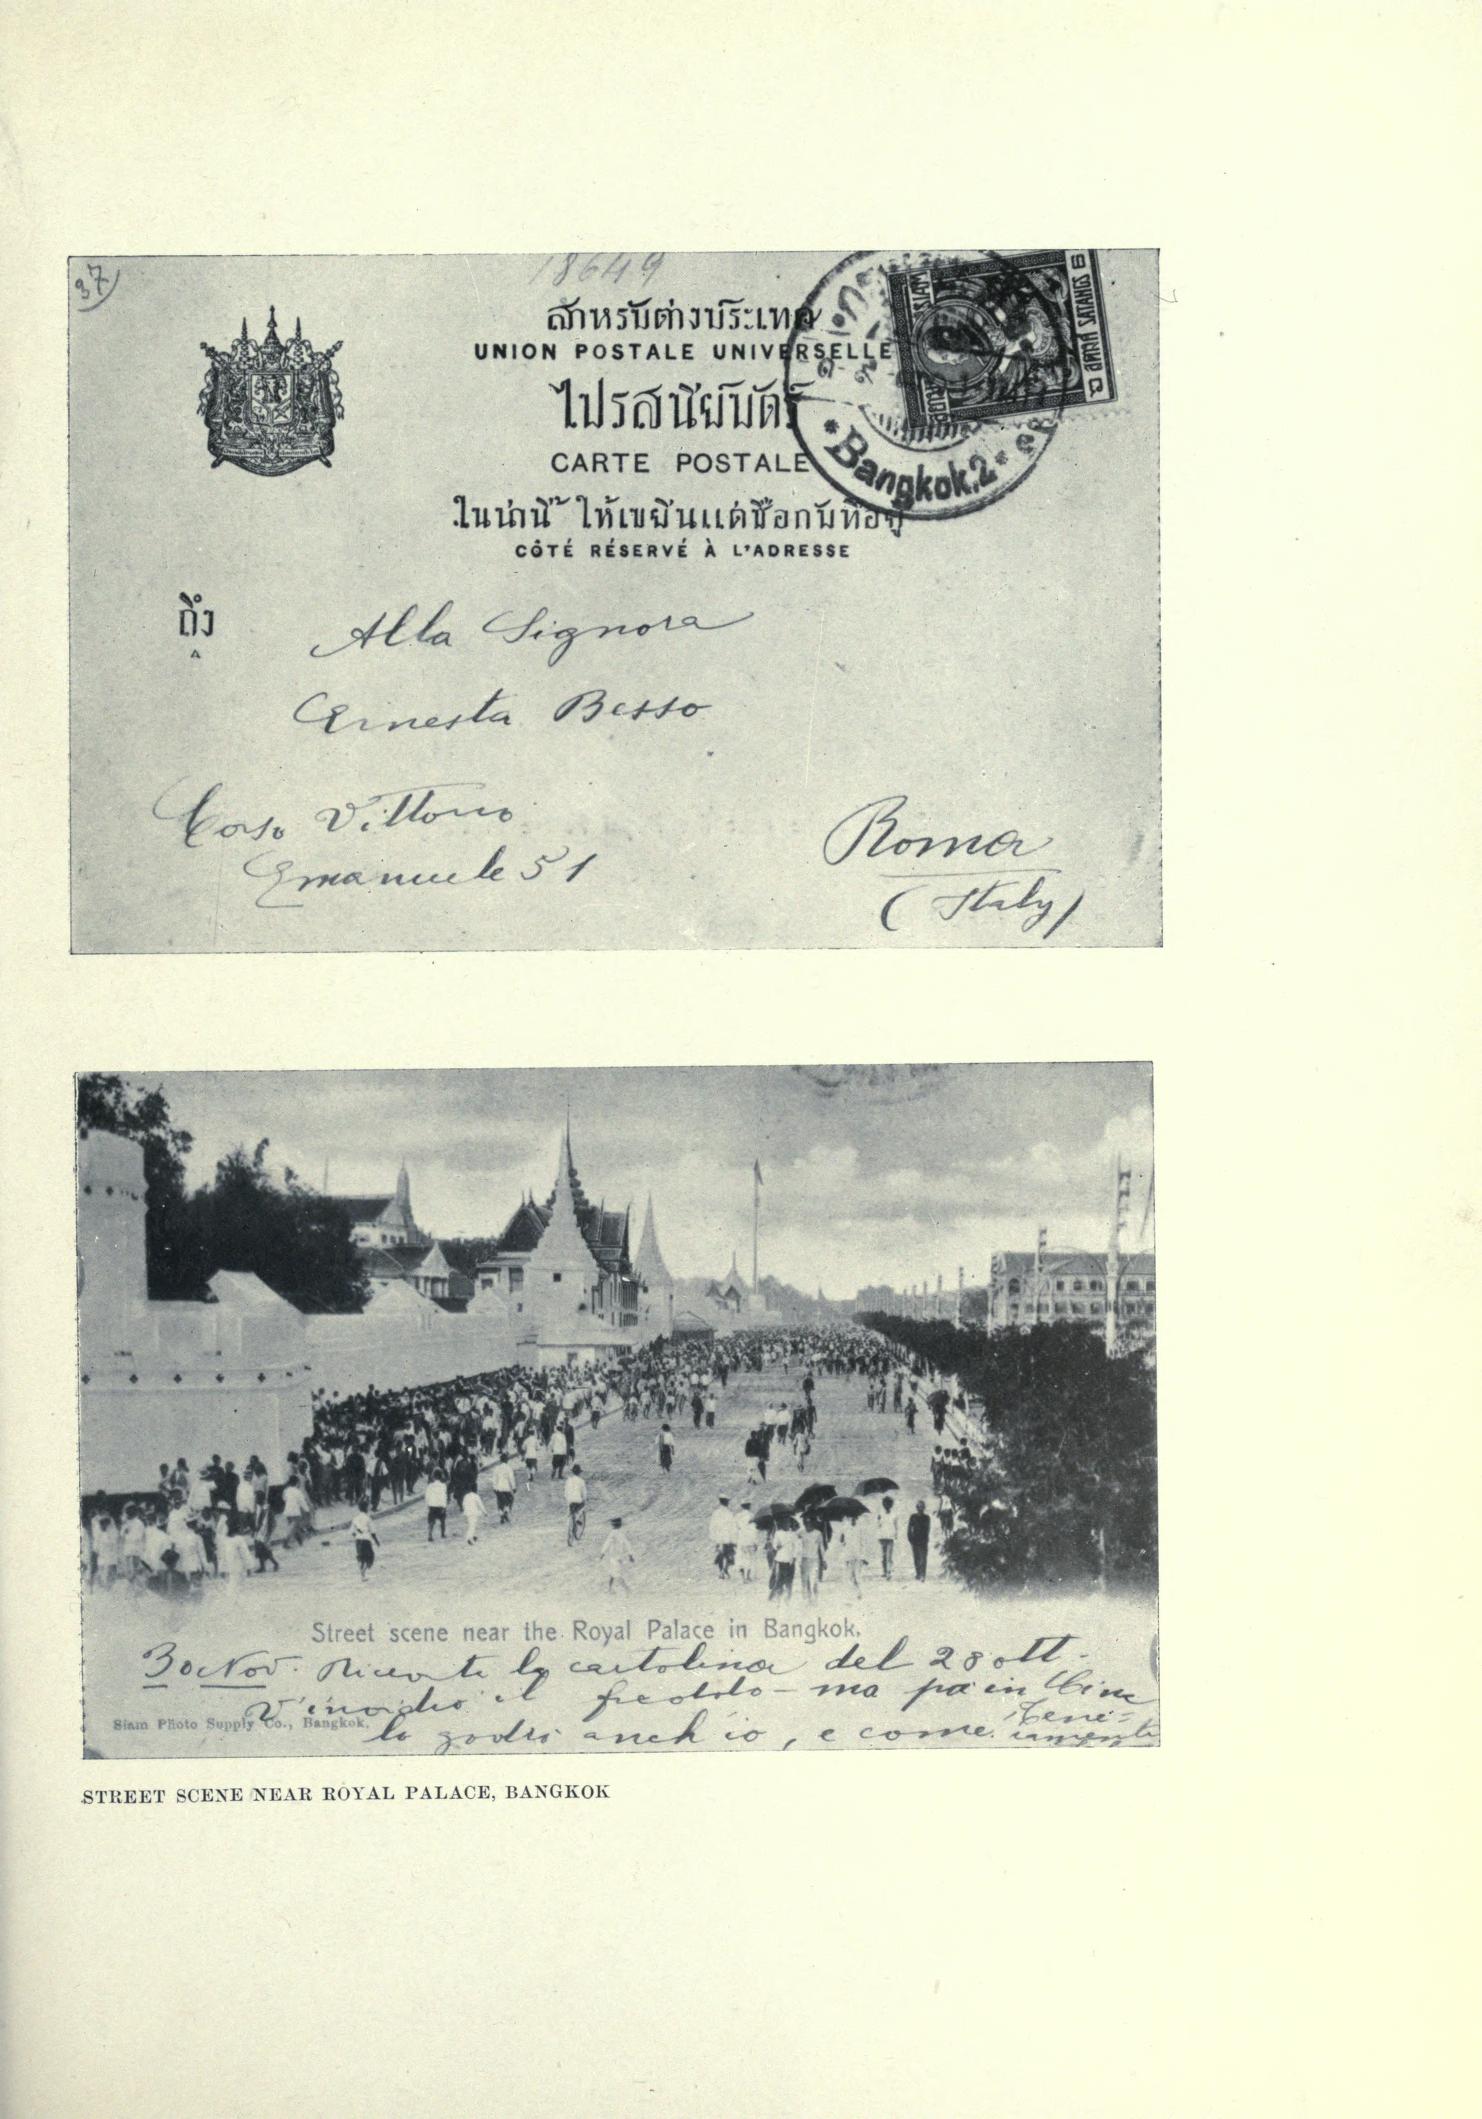 37
18649
สำหรับต่างประเทศ
UNION POSTALE UNIVERSELLE
ไปรสนีย์บัตร์
CARTE POSTALE
ในน่านี้ ให้เขียนแต่ชื่อกับที่อยู่
CÔTÉ RÉSERVÉ À L'ADRESSE
SIAM
6 SATANGS
Bangkok.2
ถึง
Alla Signora
Ernesta Besso
Corso Vittorio
Emanuele 51
Roma
(Italy)
Street scene near the Royal Palace in Bangkok.
30 Nov. Ricevuta la cartolina del 28 ott.
V'invidio il freddo - ma poi in Cina
Siam Photo Supply Co., Bangkok.
lo godrò anch'io, e come.
STREET SCENE NEAR ROYAL PALACE, BANGKOK